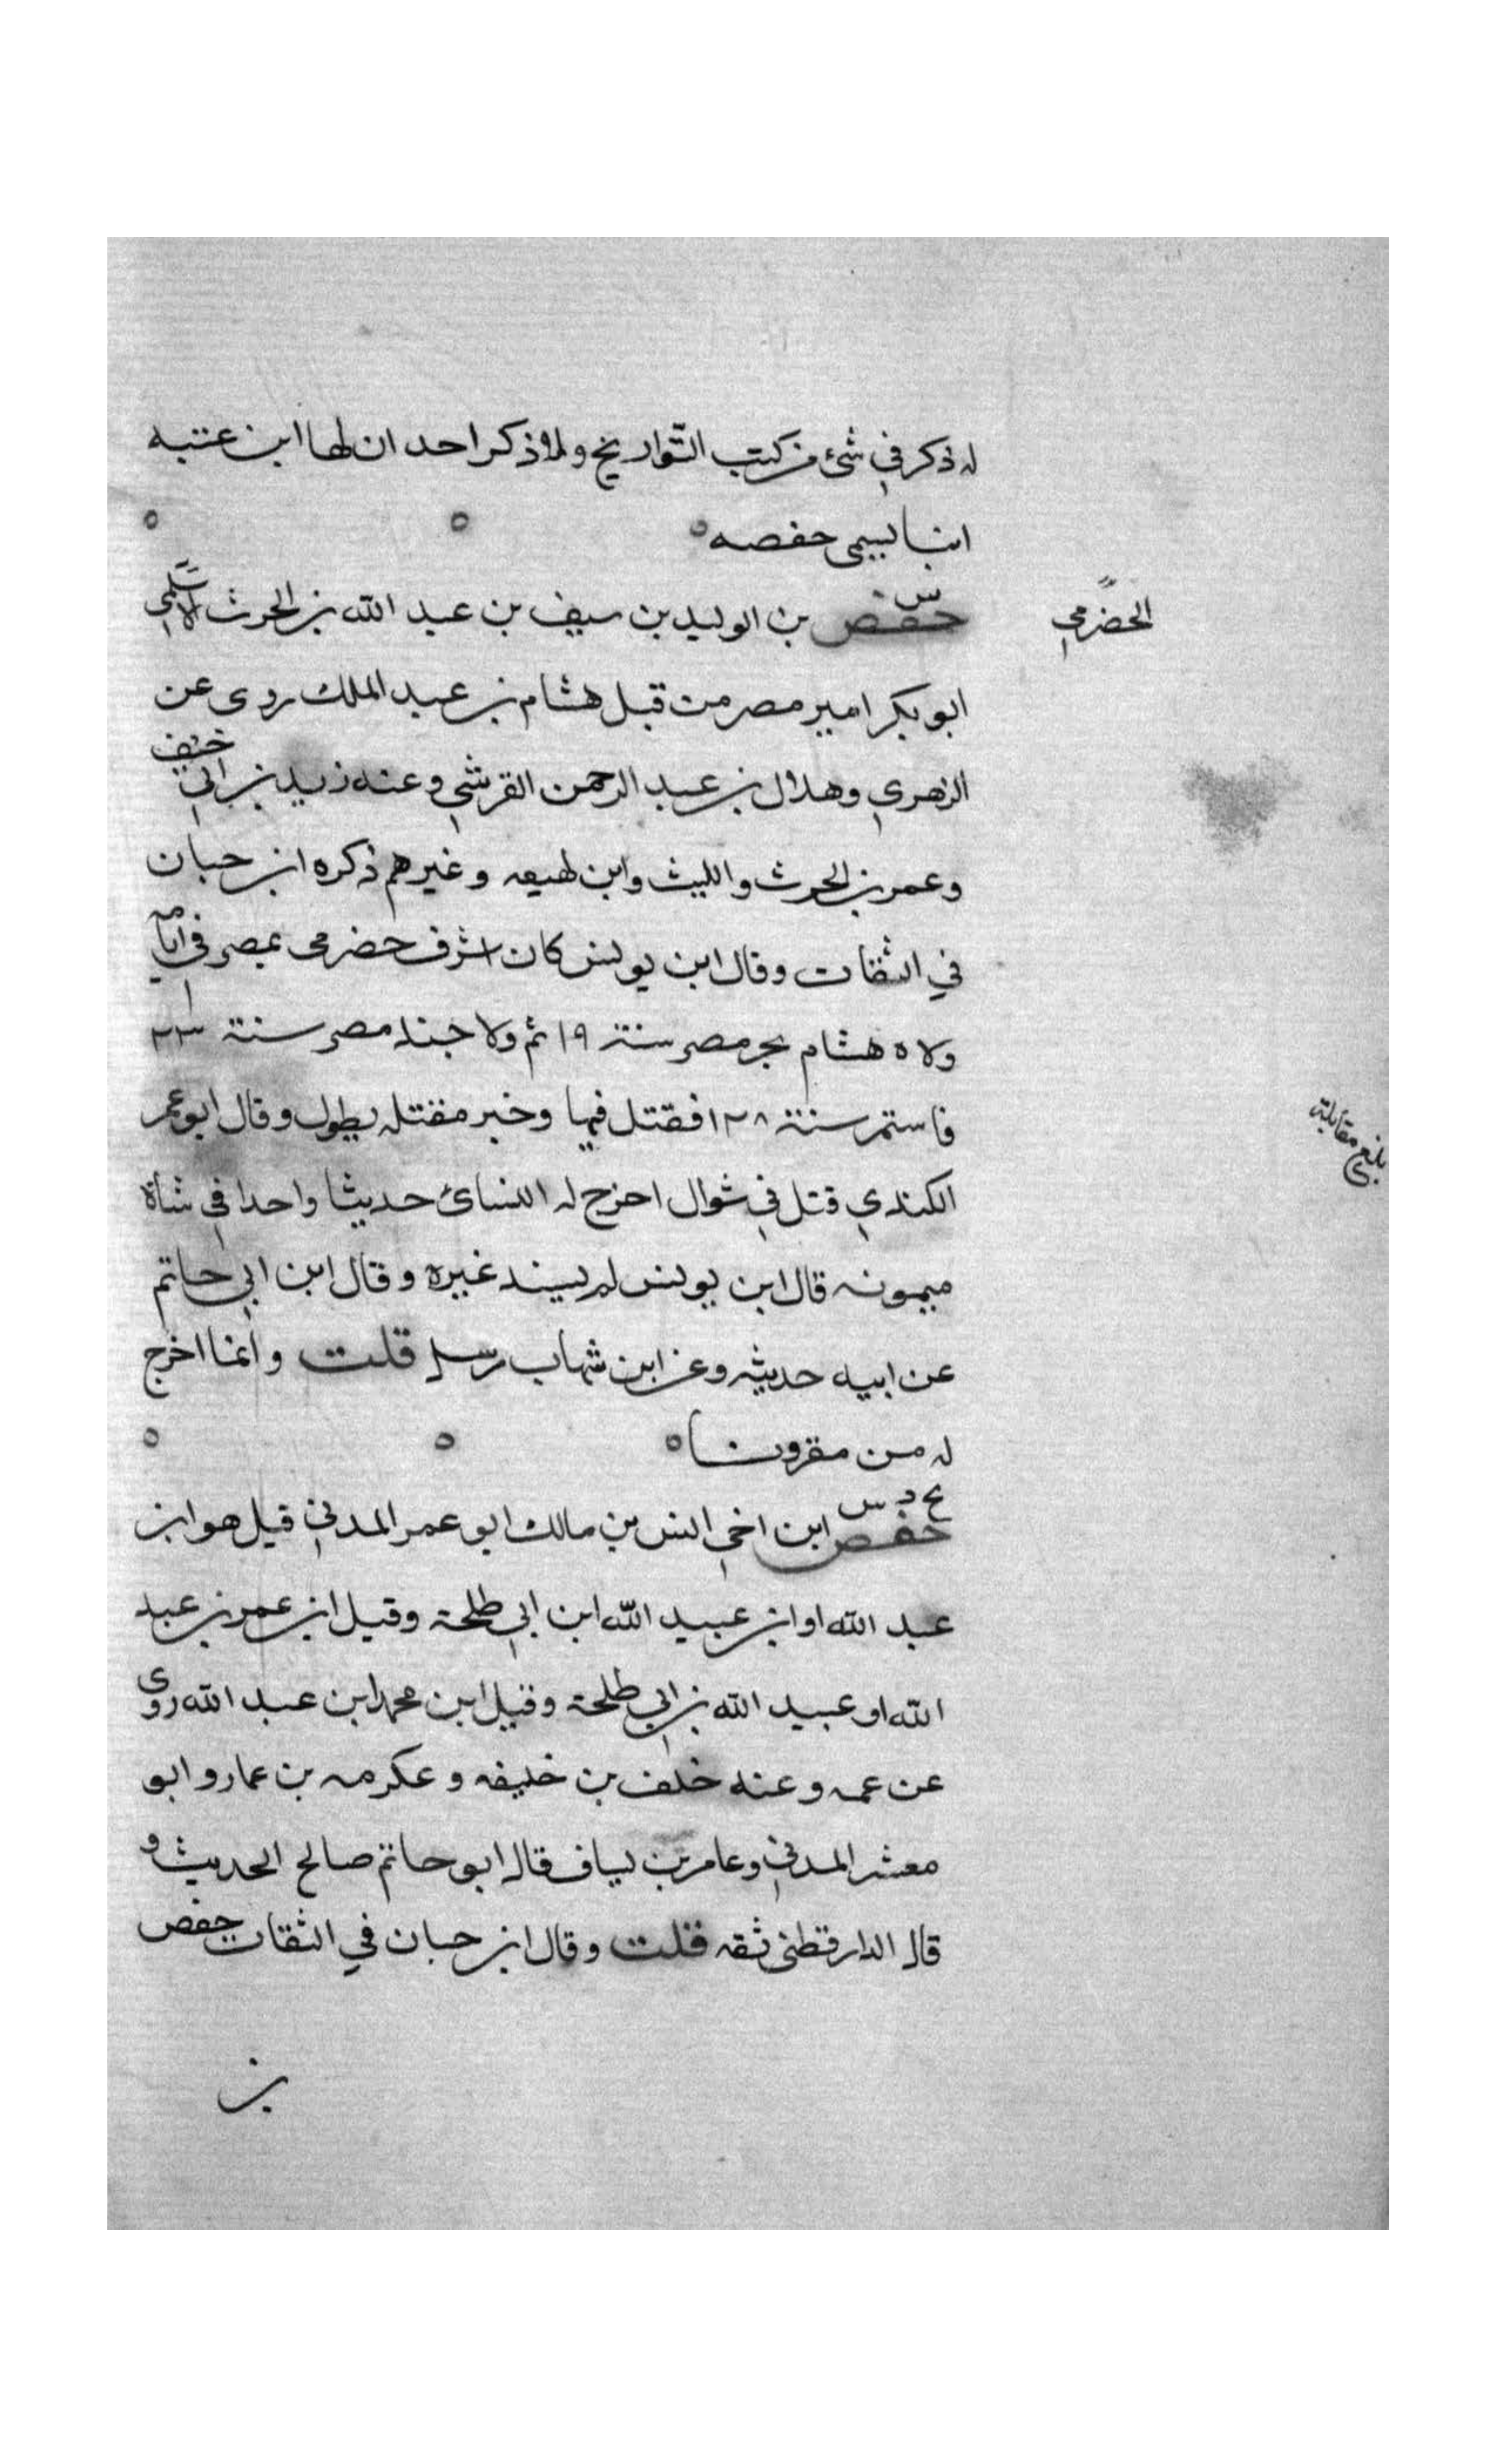 له ذكر في شئ من كتب التواريخ ولا ذكر احد ان لها ابن عتبه
ابنا يسمى حفصه
س
حفص بن الوليد بن سيف بن عبد الله بن الحرث
الحضرمي
ابو بكر امير مصر من قبل هشام بن عبد الملك روى عن
الزهري وهلال بن عبد الرحمن القرشي وعنه زيد بن ابي
وعمر بن الحرث والليث وابن لهيعه وغيرهم ذكره ابن حبان
في الثقات وقال ابن يونس كان اشرف حضرمي بمصر في ايامه
ولاه هشام بحر مصر سنة ١٩ ثم ولا جند مصر سنة ٢٣
فاستمر سنة ١٢٨ فقتل فيها وخبر مقتله يطول وقال ابو عمر
الكندي قتل في شوال اخرج له النسائ حديثا واحدا في شاة
ميمونه قال ابن يونس لم يسند غيره وقال ابن ابي حاتم
عن ابيه حديثه وعن ابن شهاب مرسل قلت وانما اخرج
له من مقرونا
بخ د س
حفص ابن اخي انس بن مالك ابو عمر المدني قيل هو ابن
عبد الله او ابن عبيد الله ابن ابي طلحة وقيل ابن عمر بن عبد
الله او عبيد الله بن ابي طلحة وقيل ابن محمد ابن عبد الله روى
عن عمه وعنه خلف بن خليفه وعكرمه بن عمار وابو
معشر المدني وعامر بن يساف قال ابو حاتم صالح الحديث و
قال الدارقطني ثقه قلت وقال ابن حبان في الثقات حفص
بن
بلغ مقابلة